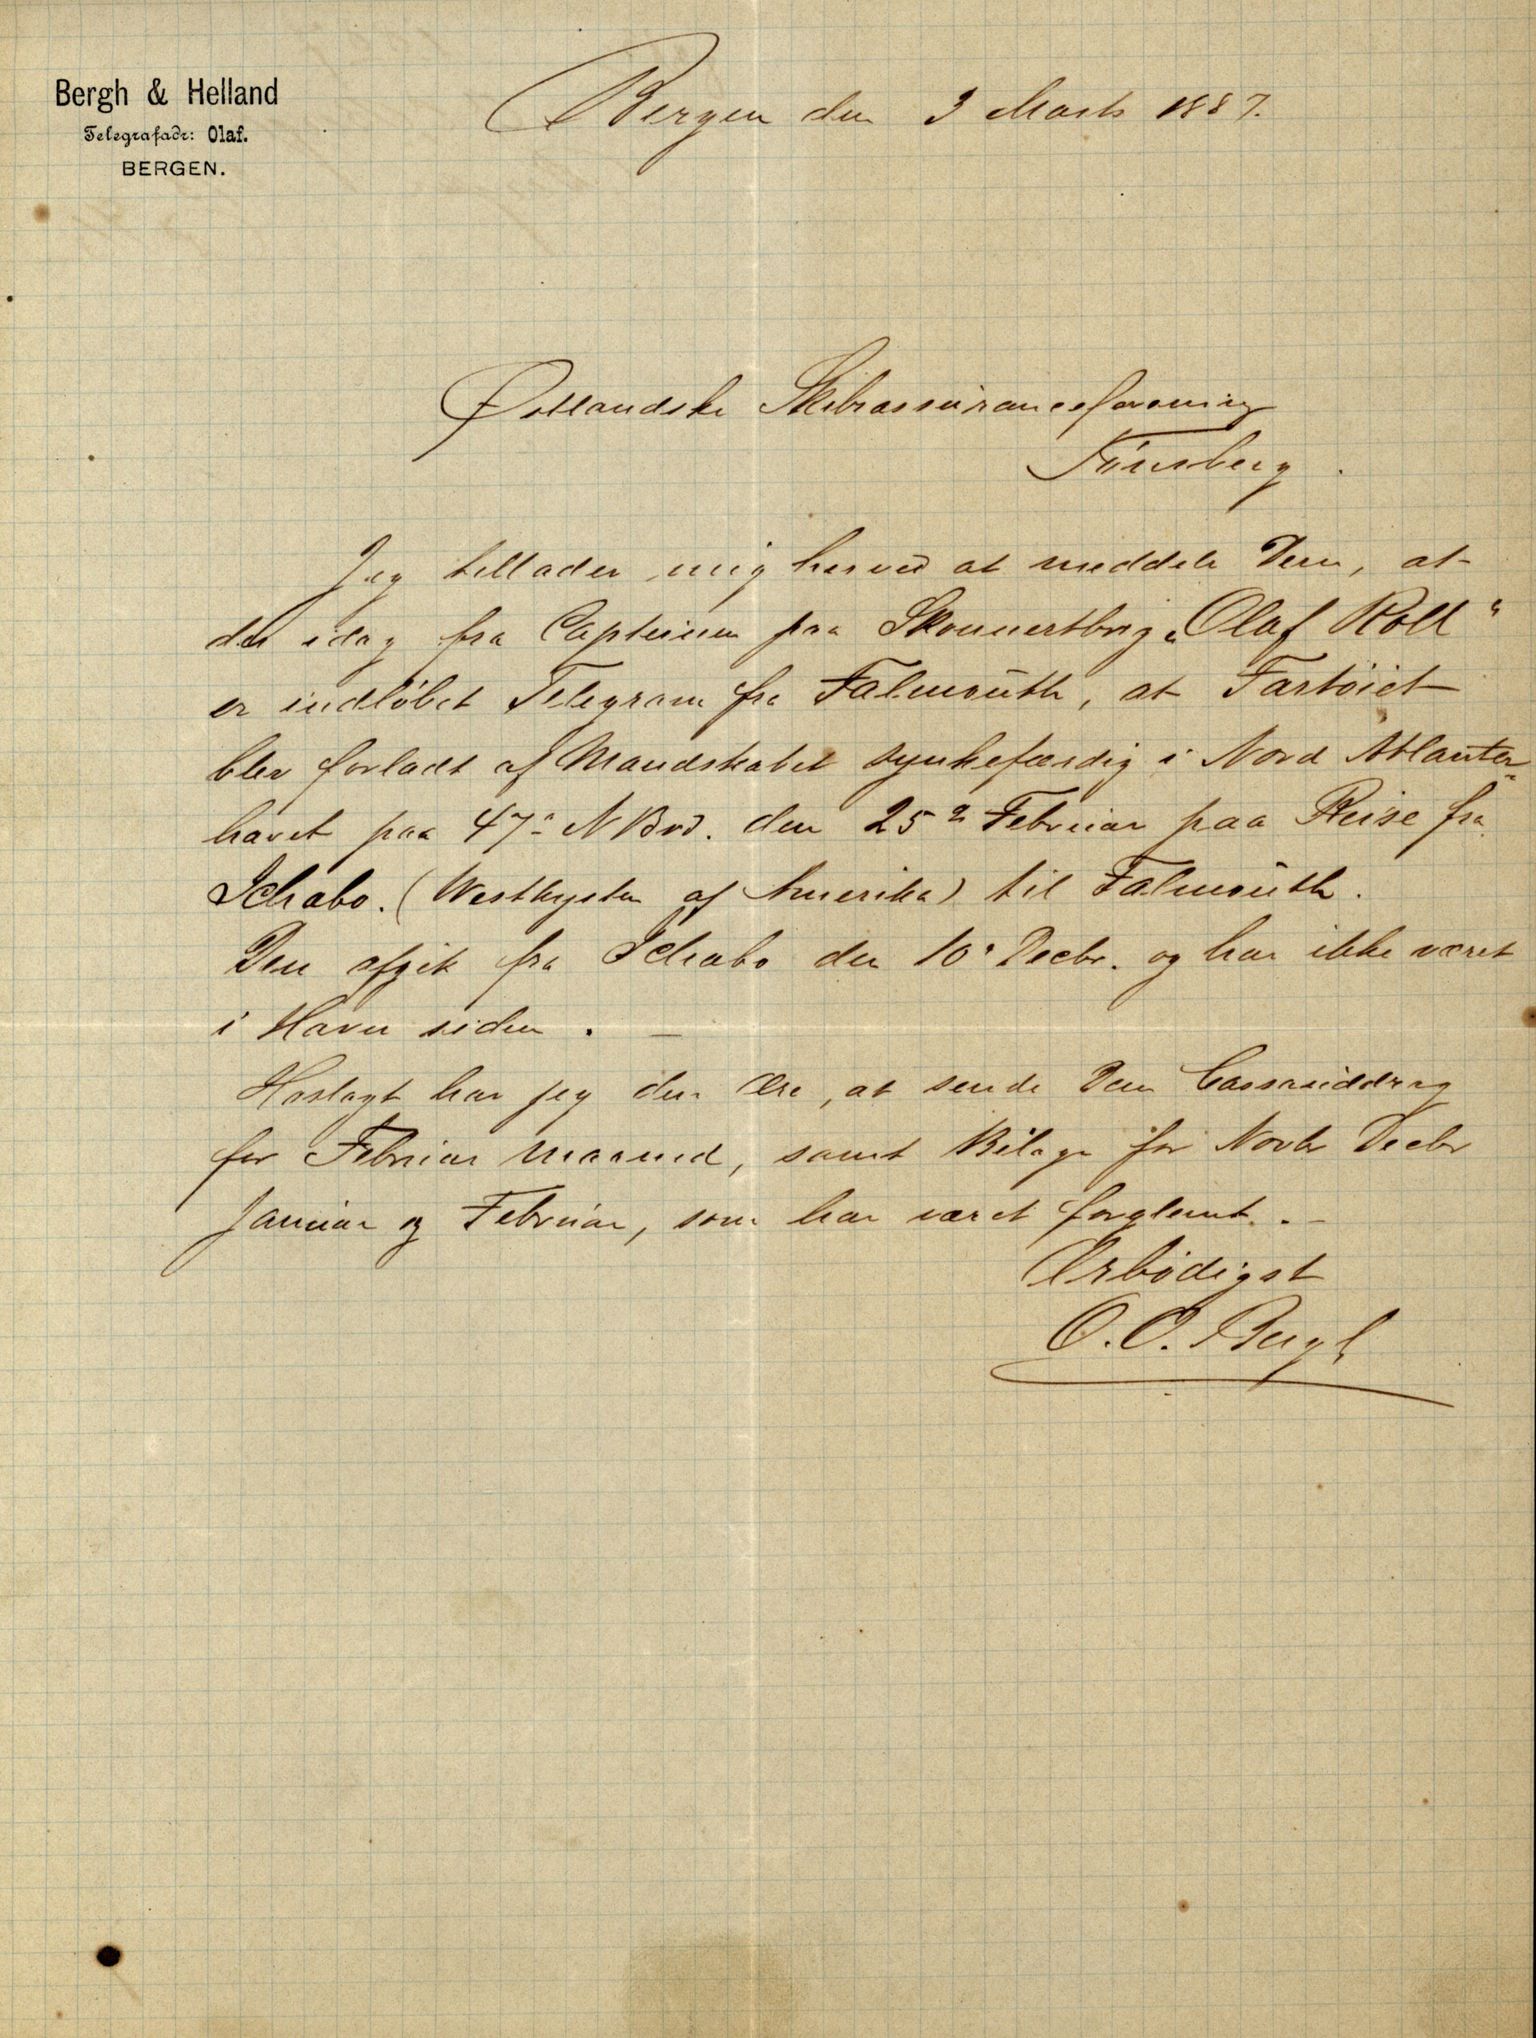 Bergh & Helland
Telegrafadr: Olaf.
BERGEN.
Bergen den 3 Marts 1887.
Østlandske Skibsassuranceforening
Tönsberg.
Jeg tillader mig herved at meddele Dem, at
der idag fra Capteinen paa Skonnertbrig „Olaf Roll"
er indløbet Telegram fra Falmouth, at Fartöiet
blev forladt af Mandskabet synkefærdig i Nord Atlanter-
havet paa 47° N Brd. den 25 Februar paa Reise fra
Ichabo. (Westkysten af Amerika) til Falmouth.
Den afgik fra Ichabo den 10' Decbr. og har ikke været
i Havn siden. —
Hoslagt har jeg den Ære, at sende Dem Cassauddrag
for Februar Maaned, samt Bilage for Novbr Decbr
Januar og Februar, som har været forglemt. —
Ærbödigst
O. O. Bergh